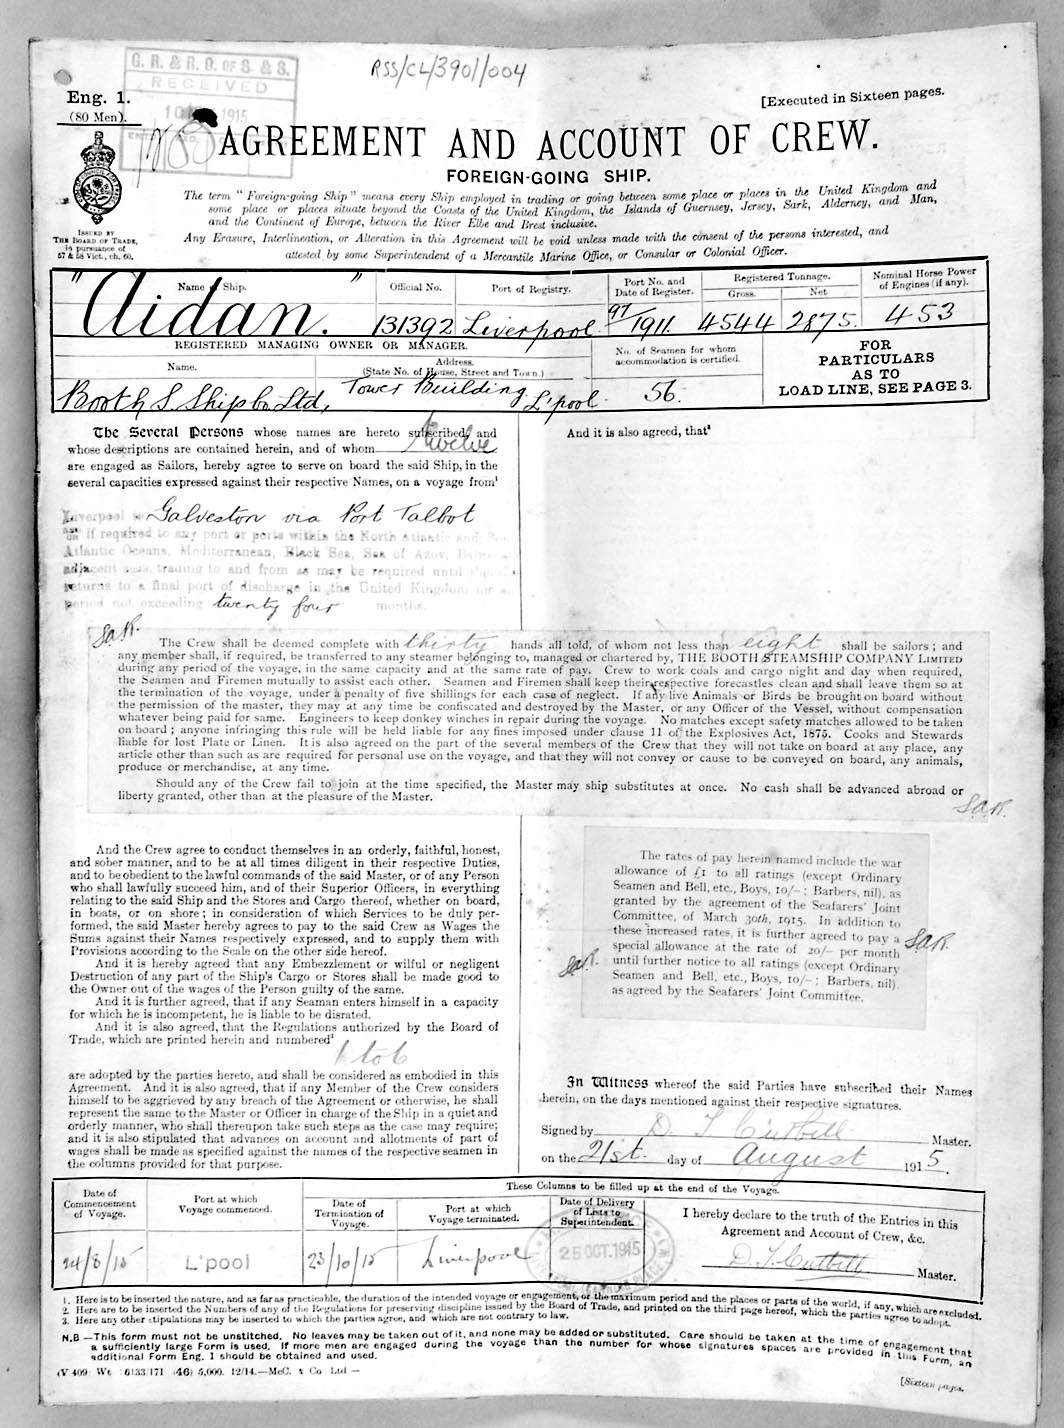 RSS/CL/3901/004
G. R. & R. O. OF S. & S.
RECEIVED
1915
Eng. 1.
(80 Men).
[Executed in Sixteen pages.
AGREEMENT AND ACCOUNT OF CREW.
FOREIGN-GOING SHIP.
ISSUED BY
THE BOARD OF TRADE,
in pursuance of
57 & 58 Vict., ch. 60.
The term "Foreign-going Ship" means every Ship employed in trading or going between some place or places in the United Kingdom and
some place or places situate beyond the Coasts of the United Kingdom, the Islands of Guernsey, Jersey, Sark, Alderney, and Man,
and the Continent of Europe, between the River Elbe and Brest inclusive.
Any Erasure, Interlineation, or Alteration in this Agreement will be void unless made with the consent of the persons interested, and
attested by some Superintendent of a Mercantile Marine Office, or Consular or Colonial Officer.
Name of Ship.
Official No.
Port of Registry.
Port No. and
Date of Register.
Registered Tonnage.
Gross.
Net
Nominal Horse Power
of Engines (if any).
"Aidan."
131392
Liverpool
97/1911.
4544
2875.
453
REGISTERED MANAGING OWNER OR MANAGER.
Name.
Address.
(State No. of House, Street and Town.)
No. of Seamen for whom
accommodation is certified.
FOR
PARTICULARS
AS TO
LOAD LINE, SEE PAGE 3.
Booth S. Ship Co Ltd,
Tower Building
L'pool.
56.
The Several Persons whose names are hereto subscribed, and
whose descriptions are contained herein, and of whom twelve
are engaged as Sailors, hereby agree to serve on board the said Ship, in the
several capacities expressed against their respective Names, on a voyage from¹
Liverpool to Galveston via Port Talbot
if required to any port or ports within the North Atlantic and
Atlantic Oceans, Mediterranean, Black Sea, Sea of Azov,
adjacent seas, trading to and from as may be required until the
returns to a final port of discharge in the United Kingdom
period not exceeding twenty four months.
And it is also agreed, that³
SaR.
The Crew shall be deemed complete with thirty hands all told, of whom not less than eight shall be sailors; and
any member shall, if required, be transferred to any steamer belonging to, managed or chartered by, THE BOOTH STEAMSHIP COMPANY LIMITED
during any period of the voyage, in the same capacity and at the same rate of pay. Crew to work coals and cargo night and day when required,
the Seamen and Firemen mutually to assist each other. Seamen and Firemen shall keep their respective forecastles clean and shall leave them so at
the termination of the voyage, under a penalty of five shillings for each case of neglect. If any live Animals or Birds be brought on board without
the permission of the master, they may at any time be confiscated and destroyed by the Master, or any Officer of the Vessel, without compensation
whatever being paid for same. Engineers to keep donkey winches in repair during the voyage. No matches except safety matches allowed to be taken
on board; anyone infringing this rule will be held liable for any fines imposed under clause 11 of the Explosives Act, 1875. Cooks and Stewards
liable for lost Plate or Linen. It is also agreed on the part of the several members of the Crew that they will not take on board at any place, any
article other than such as are required for personal use on the voyage, and that they will not convey or cause to be conveyed on board, any animals,
produce or merchandise, at any time.
Should any of the Crew fail to join at the time specified, the Master may ship substitutes at once. No cash shall be advanced abroad or
liberty granted, other than at the pleasure of the Master.
SaR.
And the Crew agree to conduct themselves in an orderly, faithful, honest,
and sober manner, and to be at all times diligent in their respective Duties,
and to be obedient to the lawful commands of the said Master, or of any Person
who shall lawfully succeed him, and of their Superior Officers, in everything
relating to the said Ship and the Stores and Cargo thereof, whether on board,
in boats, or on shore; in consideration of which Services to be duly per-
formed, the said Master hereby agrees to pay to the said Crew as Wages the
Sums against their Names respectively expressed, and to supply them with
Provisions according to the Scale on the other side hereof.
And it is hereby agreed that any Embezzlement or wilful or negligent
Destruction of any part of the Ship's Cargo or Stores shall be made good to
the Owner out of the wages of the Person guilty of the same.
And it is further agreed, that if any Seaman enters himself in a capacity
for which he is incompetent, he is liable to be disrated.
And it is also agreed, that the Regulations authorized by the Board of
Trade, which are printed herein and numbered²
1 to 6
are adopted by the parties hereto, and shall be considered as embodied in this
Agreement. And it is also agreed, that if any Member of the Crew considers
himself to be aggrieved by any breach of the Agreement or otherwise, he shall
represent the same to the Master or Officer in charge of the Ship in a quiet and
orderly manner, who shall thereupon take such steps as the case may require;
and it is also stipulated that advances on account and allotments of part of
wages shall be made as specified against the names of the respective seamen in
the columns provided for that purpose.
The rates of pay herein named include the war
allowance of £1 to all ratings (except Ordinary
Seamen and Bell, etc., Boys, 10/-; Barbers, nil), as
granted by the agreement of the Seafarers' Joint
Committee, of March 30th, 1915. In addition to
these increased rates, it is further agreed to pay a
special allowance at the rate of 20/- per month
until further notice to all ratings (except Ordinary
Seamen and Bell, etc., Boys, 10/-; Barbers, nil),
as agreed by the Seafarers' Joint Committee.
SaR.
SaR.
In Witness whereof the said Parties have subscribed their Names
herein, on the days mentioned against their respective signatures.
Signed by D. T. Cutbill Master.
on the 21st. day of August 1915.
These Columns to be filled up at the end of the Voyage.
Date of
Commencement
of Voyage.
Port at which
Voyage commenced.
Date of
Termination of
Voyage.
Port at which
Voyage terminated.
Date of Delivery
of Lists to
Superintendent.
I hereby declare to the truth of the Entries in this
Agreement and Account of Crew, &c.
24/8/15
L'pool
23/10/15
Liverpool
25 OCT. 1915
D. T. Cutbill Master.
1. Here is to be inserted the nature, and as far as practicable, the duration of the intended voyage or engagement, or the maximum period and the places or parts of the world, if any, which are excluded.
2. Here are to be inserted the Numbers of any of the Regulations for preserving discipline issued by the Board of Trade, and printed on the third page hereof, which the parties agree to adopt.
3. Here any other stipulations may be inserted to which the parties agree, and which are not contrary to law.
N.B.—This form must not be unstitched. No leaves may be taken out of it, and none may be added or substituted. Care should be taken at the time of engagement that
a sufficiently large Form is used. If more men are engaged during the voyage than the number for whose signatures spaces are provided in this Form, an
additional Form Eng. 1 should be obtained and used.
(V 409) Wt. 6133/171 (46) 5,000. 12/14.—McC. & Co Ltd—
[Sixteen pages.